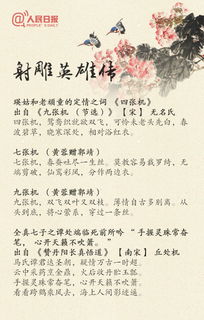 @人民日报
PEOPLE'S DAILY
射雕英雄传
瑛姑和老顽童的定情之词 《四张机》
出自 《九张机（节选）》【宋】 无名氏
四张机，鸳鸯织就欲双飞，可怜未老头先白，春
波碧草，晓寒深处，相对浴红衣。
七张机 （黄蓉赠郭靖）
七张机，春蚕吐尽一生丝，莫教容易裁罗绮，无
端剪破，仙鸾彩凤，分作两边衣。
九张机 （黄蓉赠郭靖）
九张机，双飞双叶又双枝，薄情自古多别离，从
头到底，将心萦系，穿过一条丝。
全真七子之谭处端临死前所吟 “手握灵珠常奋
笔， 心开天籁不吹箫。”
出自 《赞丹阳长真悟道》【南宋】 丘处机
马氏谭君达圣朝，疑情万古一时超。
云中采药烹金鼎，火后收丹贮玉瓢。
手握灵珠常奋笔，心开天籁不吹箫。
看看跨鹤乘风去，海上人间影迹遥。